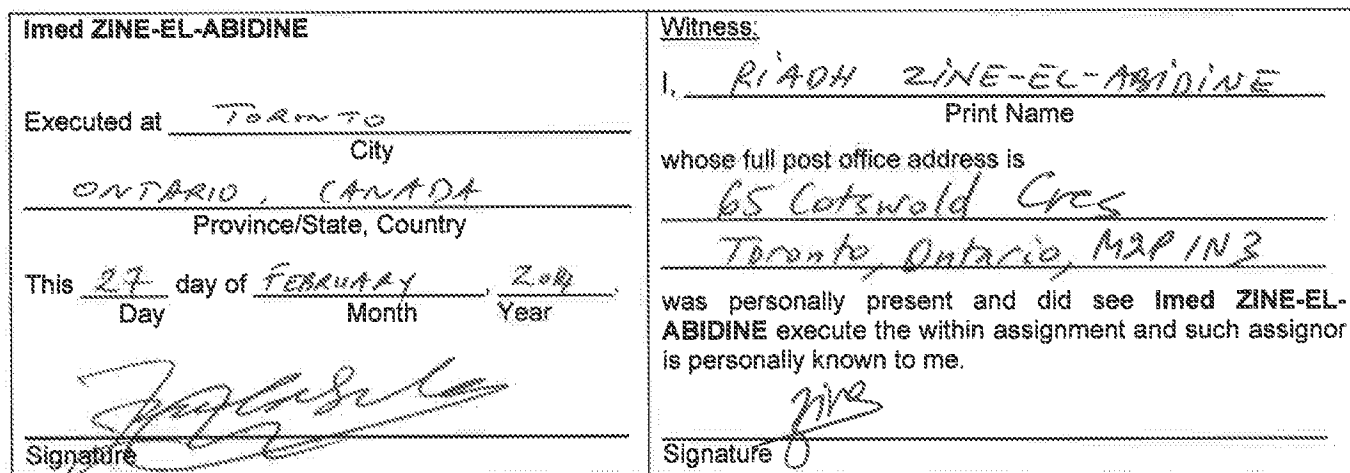 Imed ZINE-EL-ABIDINE
Executed at TORONTO
City
ONTARIO, CANADA
Province/State, Country
This 27 day of FEBRUARY,
Day Month Year
Signature
Witness:
I, RIADH ZINE-EL-ABIDINE
Print Name
whose full post office address is
65 Cotswold Cres
Toronto, Ontario, M2P 1N3
was personally present and did see Imed ZINE-EL-
ABIDINE execute the within assignment and such assignor
is personally known to me.
Signature